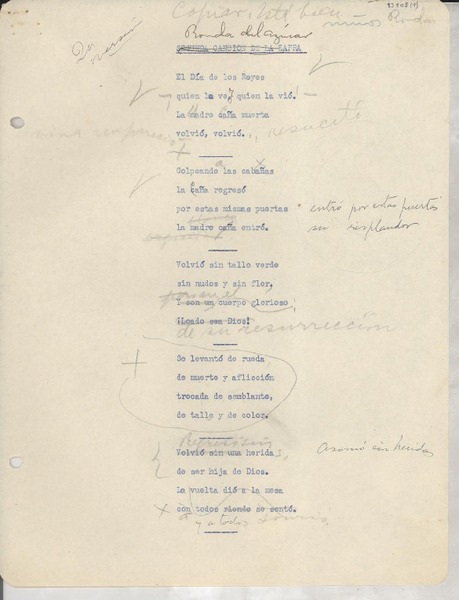 Copiar. Está bien
niños Rondas
2a versión
Ronda del azúcar
SEGUNDA CANCION DE LA ZAFRA
El Día de los Reyes
quien la ve, quien la vió.
La madre caña muerta
volvió, volvió.
resucitó
Golpeando las cabañas
la caña regresó
por estas mismas puertas
entró por estas puertas
la madre caña entró.
su resplandor
Volvió sin tallo verde
sin nudos y sin flor.
Y con un cuerpo glorioso
¡Loado sea Dios!
de su resurrección
Se levantó de rueda
de muerte y aflicción
trocada de semblante,
de talle y de color.
Volvió sin una herida
Asomó sin heridas
de ser hija de Dios.
La vuelta dió a la mesa
con todos riendo se sentó.
y a todos sonrió